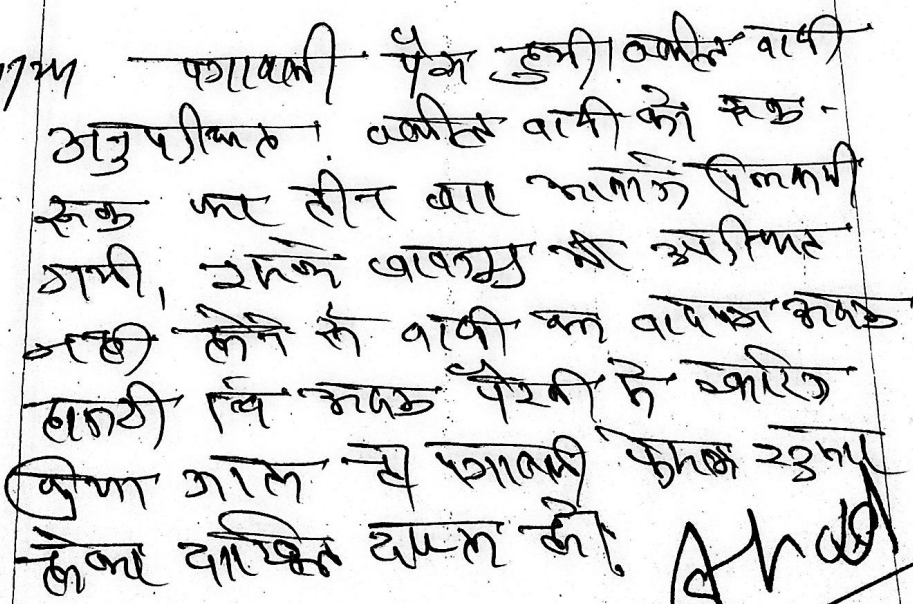 पत्रावली पेश हुयी। वकील वादी
अनुपस्थित। वकील वादी को रूक-
रूक कर तीन बार आवाजे दिलवायी
गयी, इसके बावजूद भी उपस्थित
नही होने से वादी का वादपत्र अदम
हाजरी एवं अदम पैरवी में खारिज
किया जाता है पत्रावली फैसल शुमार
होकर दाखिल दफ्तर हो।